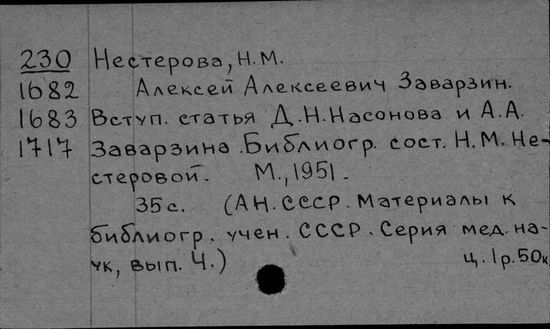 230 Нестерова, Н.М.
1682 Алексей Алексеевич Заварзин.
1683 Вступ. статья Д.Н.Насонова и А.А.
1717 Заварзина. Библиогр. сост. Н.М. Не-
стеровой. М., 1951.
35 с. (АН.СССР. Материалы к
библиогр. учен. СССР. Серия мед. на-
ук, вып. 4.) ц. 1р.50к